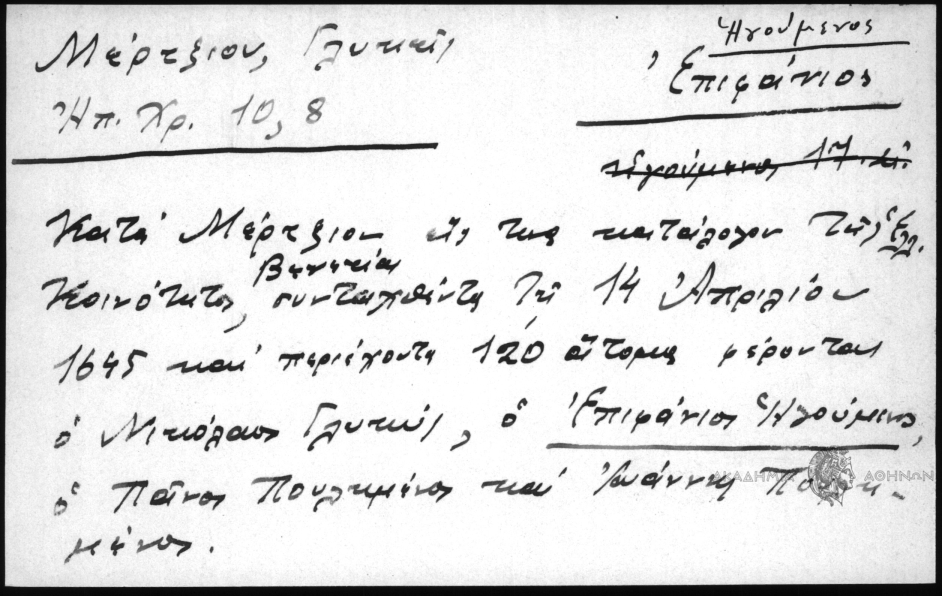 Μέρτζιου, Γλυκεῖς
Ἠπ. Χρ. 10, 8
Ἡγούμενος
Ἐπιφάνιος
Ἡγούμενος 17 αἰ.
Κατὰ Μέρτζιον εἰς τὸν κατάλογον τῆς Ἑλλ.
Κοινότητος Βενετίας, συνταχθέντα τῇ 14 Ἀπριλίου
1645 καὶ περιέχοντα 120 ἄτομα φέρονται
ὁ Νικόλαος Γλυκύς, ὁ Ἐπιφάνιος Ἡγούμενος,
ὁ Πάνος Πουλημένος καὶ Ἰωάννης
μένος.
ΑΚΑΔΗΜΙΑ ΑΘΗΝΩΝ